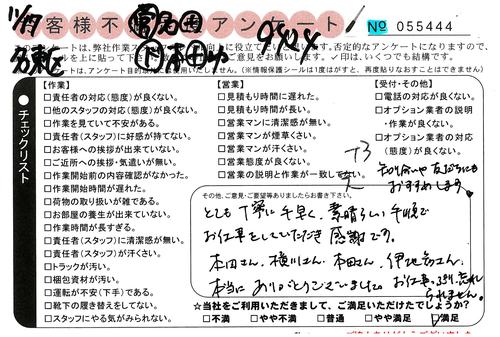 お客様不満アンケート
No 055444
は、アンケート目的
(※情報保護シールは1度はがすと、再度貼りなおすことはできません)
チェックリスト
【作業】
□責任者の対応(態度)が良くない。
□他のスタッフの対応(態度)が良くない。
□作業を見ていて不安がある。
□責任者(スタッフ)に好感が持てない。
□お客様への挨拶が出来ていない。
□ご近所への挨拶・気遣いが無い。
□作業開始前の内容確認がなかった。
□作業開始時間が遅れた。
□荷物の取り扱いが雑である。
□お部屋の養生が出来ていない。
□作業時間が長すぎる。
□責任者(スタッフ)に清潔感が無い。
□責任者(スタッフ)が汗くさい。
□トラックが汚い。
□梱包資材が汚い。
□運転が不安(下手)である。
□靴下の履き替えをしてない。
□スタッフにやる気がみられない。
【営業】
□見積もり時間に遅れた。
□見積もり時間が長い。
□営業マンに清潔感が無い。
□営業マンが煙草くさい。
□営業マンが汗くさい。
□営業態度が良くない。
□営業の説明と作業が一致してない
【受付・その他】
□電話の対応が良くない。
□オプション業者の説明
・作業が良くない。
□オプション業者の対応
(態度)が良くない。
おすすめします。
その他、ご意見・ご要望等ありましたらお書き下さい。
とても丁寧に手早く、素晴らしい手順で
お仕事をしていただき感謝です。
本田さん、横川さん、本田さん、伊地高さん、
本当にありがとうございました。お仕事ぶり、忘れ
られません。
☆当社をご利用いただきまして、ご満足いただけたでしょうか?
□不満 □やや不満 □普通 □やや満足 ☑満足